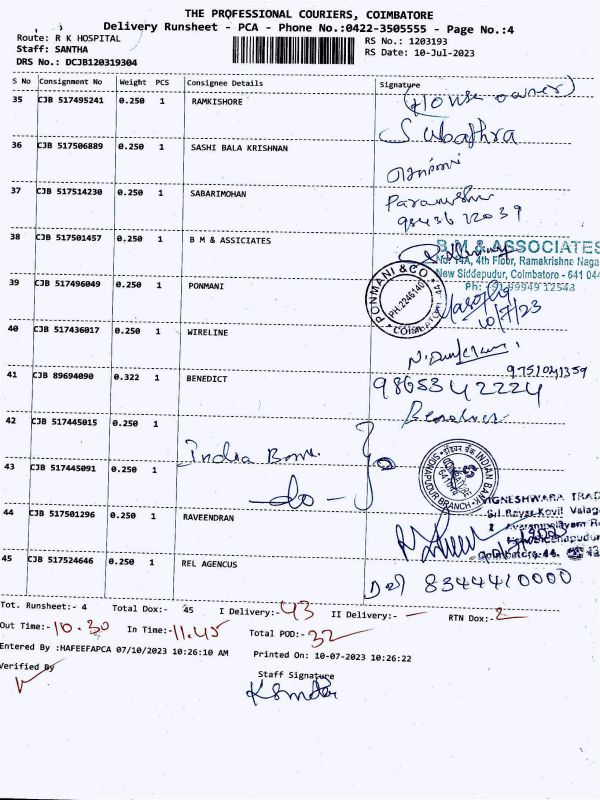 THE PROFESSIONAL COURIERS, COIMBATORE
Delivery Runsheet - PCA - Phone No.:0422-3505555 - Page No.:4
Route: R K HOSPITAL
RS No.: 1203193
Staff: SANTHA
RS Date: 10-Jul-2023
DRS No.: DCJB120319304
S No Consignment No Weight PCS Consignee Details Signature
35 CJB 517495241 0.250 1 RAMKISHORE (House owner)
Subathra
36 CJB 517506889 0.250 1 SASHI BALA KRISHNAN
37 CJB 517514230 0.250 1 SABARIMOHAN
98436 72039
38 CJB 517501457 0.250 1 B M & ASSICIATES
B M & ASSOCIATES
No: 14A, 4th Floor, Ramakrishne Naga
New Siddapudur, Coimbatore - 641 044
39 CJB 517496049 0.250 1 PONMANI
PONMANI & CO.
PH:2246140
COIMBATORE-44
10/7/23
40 CJB 517436017 0.250 1 WIRELINE
9751041359
41 CJB 89694090 0.322 1 BENEDICT 9865342224
42 CJB 517445015 0.250 1
India Bank
INDIAN BANK
BRANCH
43 CJB 517445091 0.250 1
-do-
VIGNESHWARA TRAD
44 CJB 517501296 0.250 1 RAVEENDRAN
45 CJB 517524646 0.250 1 REL AGENCUS
8344410000
Tot. Runsheet:- 4 Total Dox:- 45 I Delivery:- 43 II Delivery:- — RTN Dox:- 2
Out Time:- 10.30 In Time:- 11.45 Total POD:- 32
Entered By :HAFEEFAPCA 07/10/2023 10:26:10 AM Printed On: 10-07-2023 10:26:22
Verified By
Staff Signature